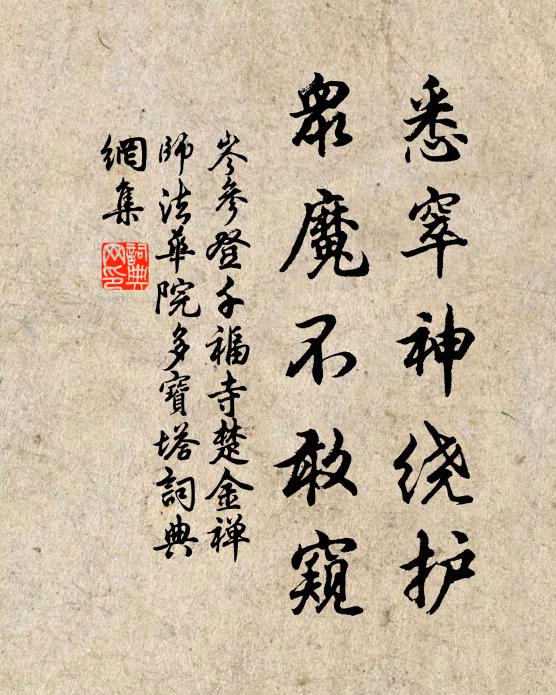 悉窣神绕护
眾魔不敢窺
岑參登千福寺楚金禅
師法華院多寶塔詞典
網集
詞典
网印